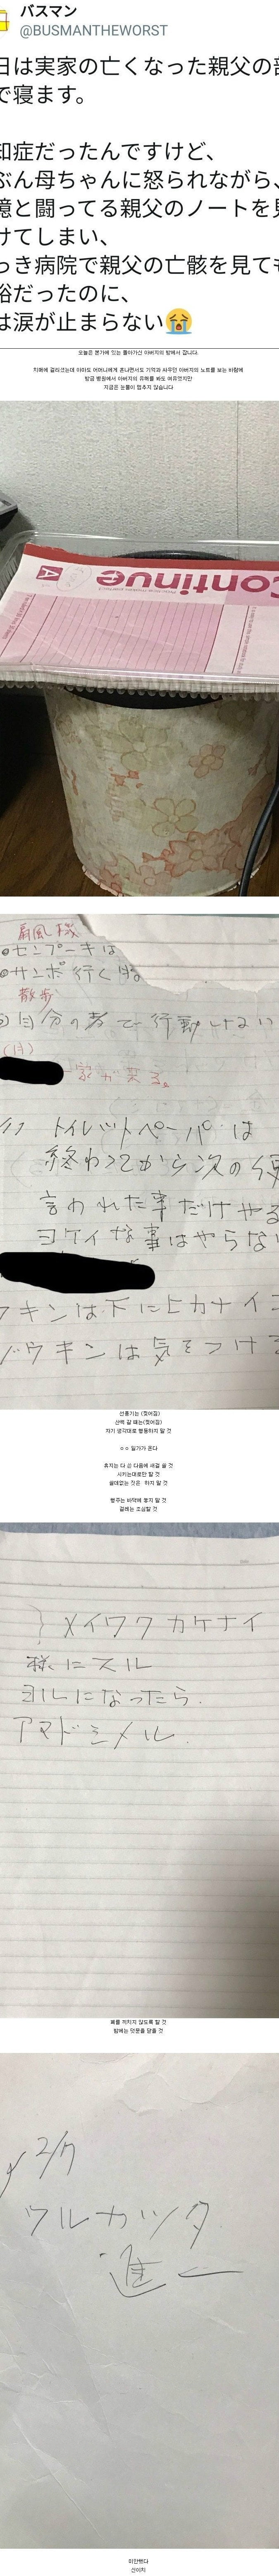 バスマン
@BUSMANTHEWORST
日は実家の亡くなった親父の部
で寝ます。
知症だったんですけど、
ぶん母ちゃんに怒られながら、
憶と闘ってる親父のノートを見
けてしまい、
っき病院で親父の亡骸を見ても
裕だったのに、
は涙が止まらない😭
오늘은 본가에 있는 돌아가신 아버지의 방에서 잡니다.
치매에 걸리셨는데 아마도 어머니에게 혼나면서도 기억과 싸우던 아버지의 노트를 보는 바람에
방금 병원에서 아버지의 유해를 봐도 여유였지만
지금은 눈물이 멈추지 않습니다
Continue
A
扇風機
●センプーキは
●サンポ行く時
散歩
自分の考で行動しない
(月)
家が笑る。
トイレットペーパーは
終わってから次の
言われた事だけやる
ヨケイな事はやらない
フキンは下にヒカナイ
ゾウキンは気をつける
선풍기는 (찢어짐)
산책 갈 때는(찢어짐)
자기 생각대로 행동하지 말 것
ㅇㅇ 일가가 온다
휴지는 다 쓴 다음에 새걸 쓸 것
시키는대로만 할 것
쓸데없는 것은 하지 말 것
행주는 바닥에 놓지 말 것
걸레는 조심할 것
メイワクカケナイ
様にスル
ヨルになったら.
アマドシメル.
폐를 끼치지 않도록 할 것
밤에는 덧문을 닫을 것
2/7
ワルカッタ
進一
미안했다
신이치